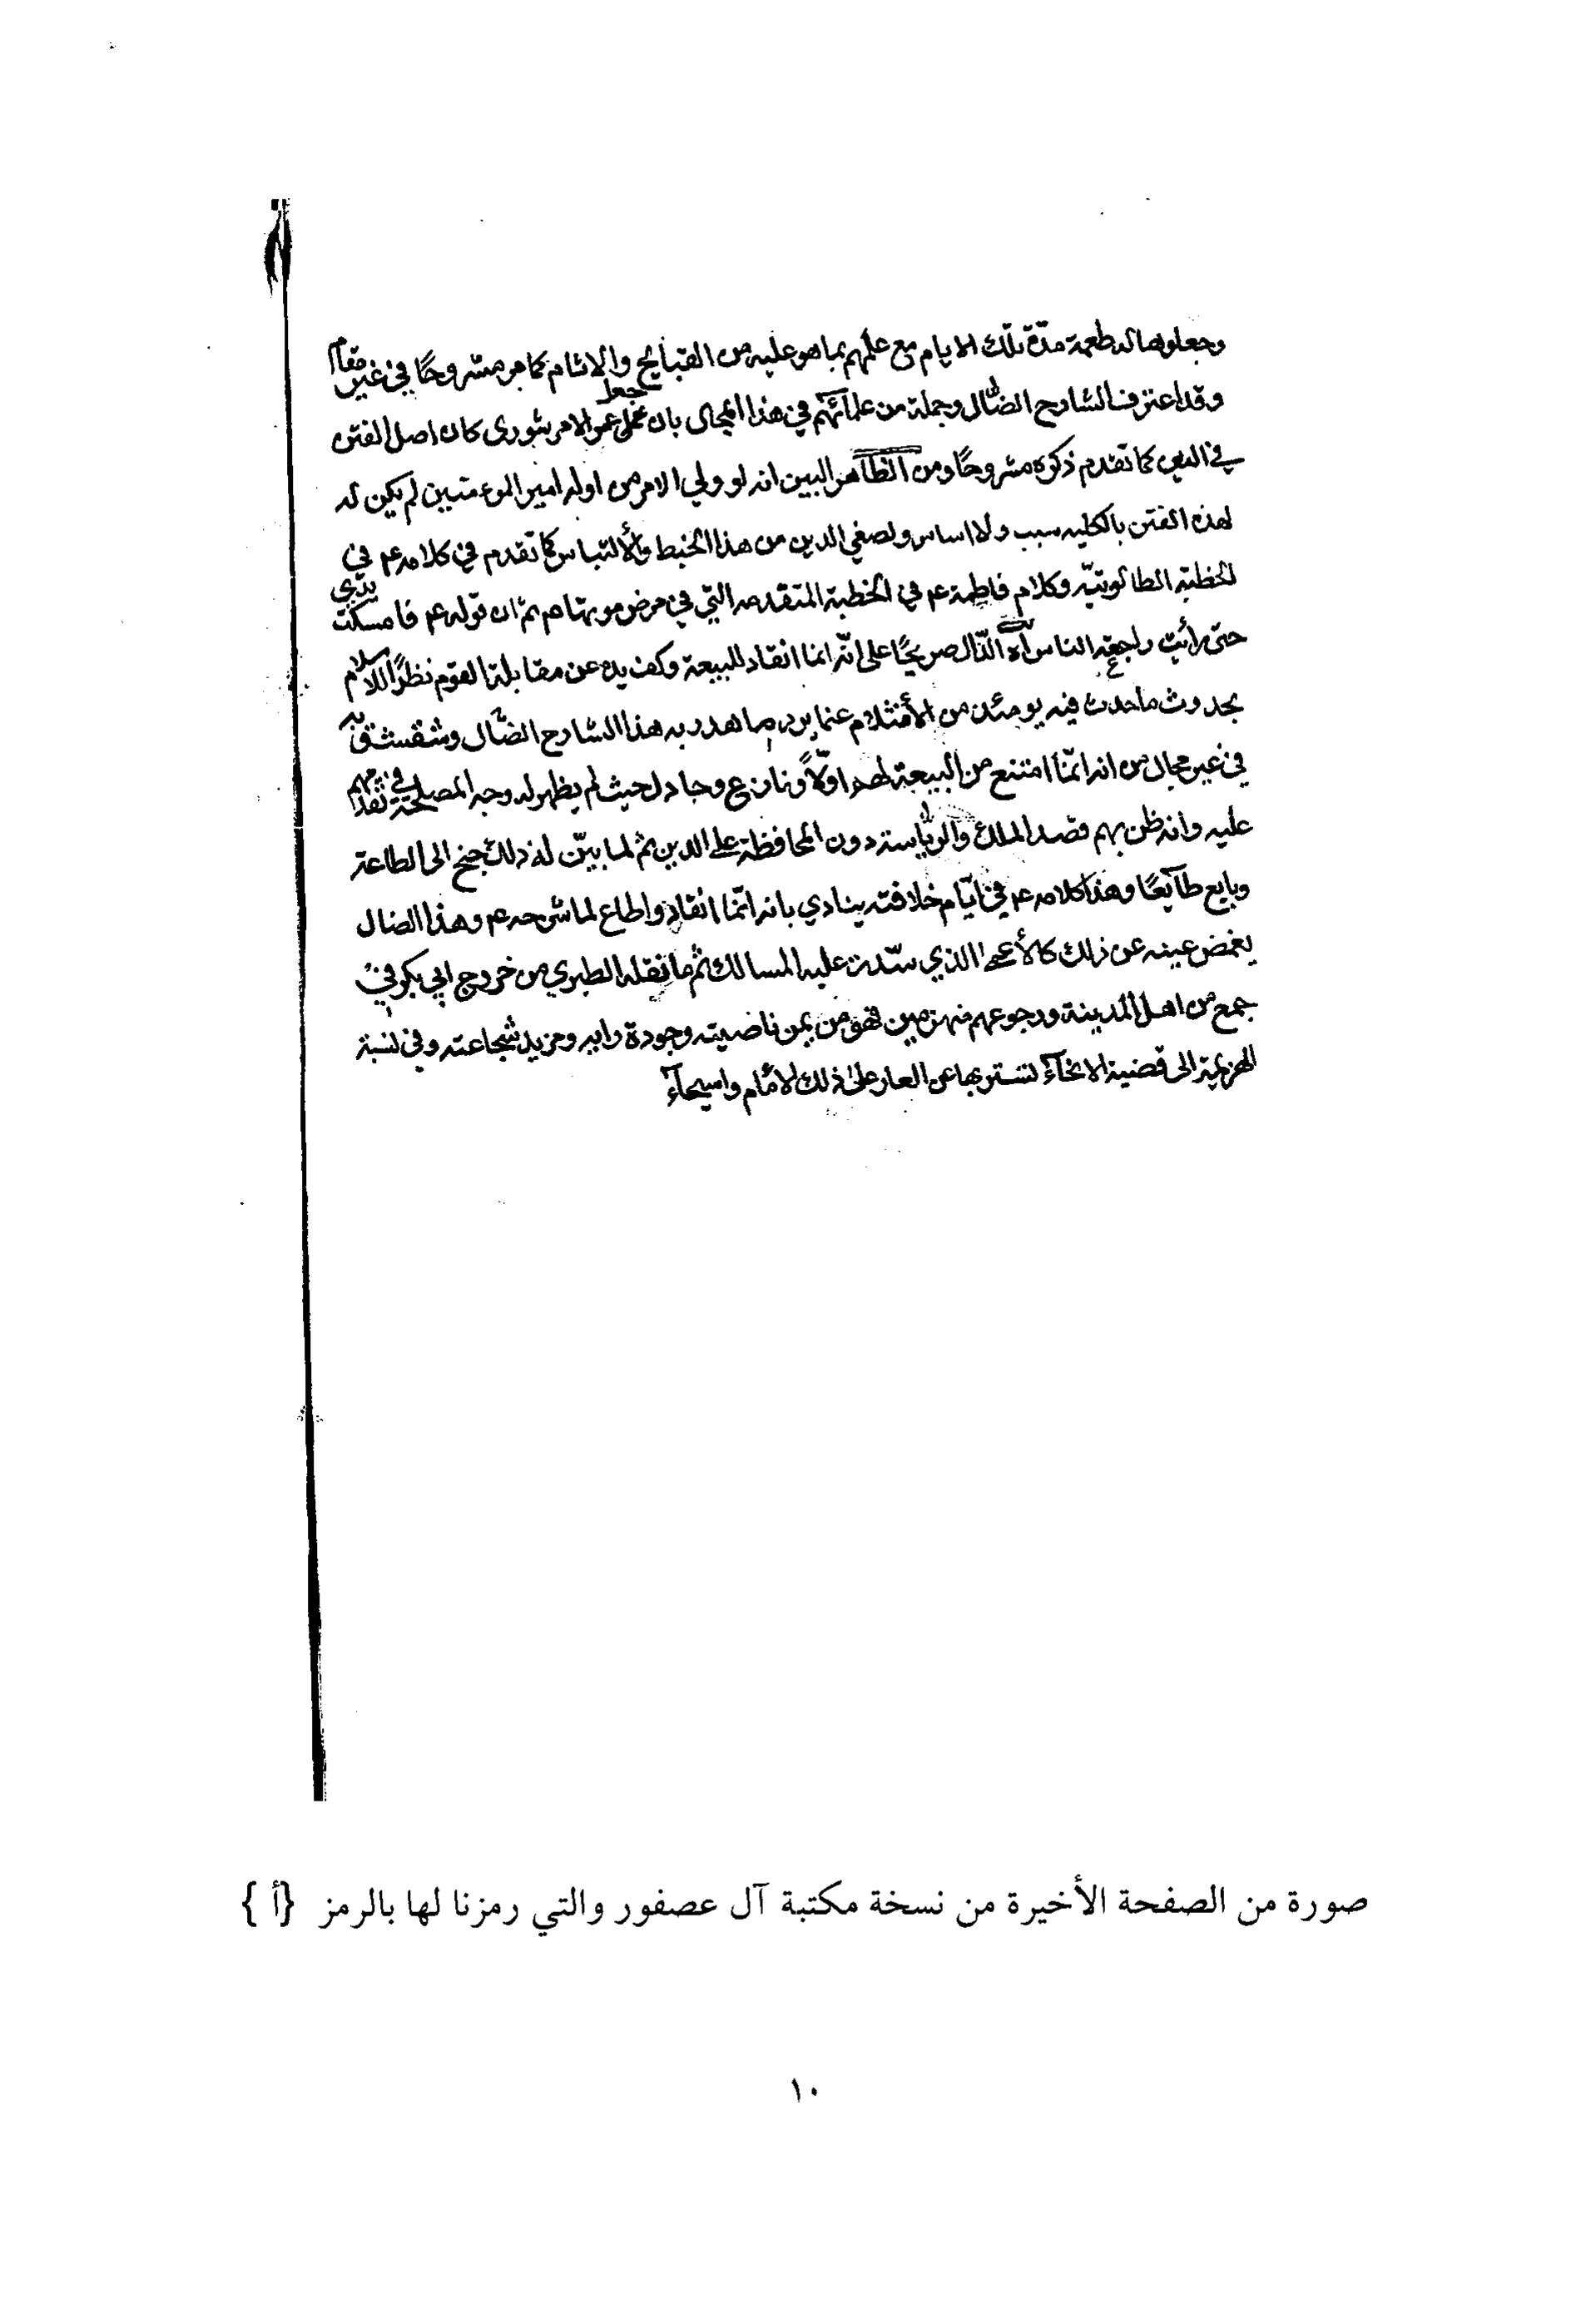 وجعلوها له طعمة مدّة تلك الايام مع علمهم بما هو عليه من القبايح والاثام كما مر مشروحًا في غير مقام
وقد اعترف الشارح الضّال وجملة من علمآئهم في هذا المجال بان جعل عمر الامر شورى كان اصل الفتن
في الدين كما تقدم ذكره مشروحًا ومن الظآهر البين انه لو ولي الامر من اوله امير الموءمنين لم يكن له
لهذه الفتن بالكليه سبب ولا اساس ولصفي الدين من هذا الخبط والألتباس كما تقدم في كلامه ع في
الخطبة الطالوتيّه وكلام فاطمة ع في الخطبة المتقدمه التي في مرض موتها ثمّ ان قوله ع فامسكت يدي
حتى رأيت راجعة الناس الدّال صريحًا على انّه انما انقاد للبيعة وكف يده عن مقابلة القوم نظرًا للاسلام
بحدوث ما حدث فيه يومئذ من الأنثلام عنما هدر به هذا الشارح الضّال وشقشق به
في غير مجال من انه انّما امتنع من البيعة لهم اوّلاً ونازع وجادل حيث لم يظهر له وجه المصلحة في تقدمهم
عليه وانه ظن بهم قصد الملك والريّاسة دون المحافظة على الدين ثم لما بيّن له ذلك جنح الى الطاعة
وبايع طآيعًا وهذا كلامه ع في ايّام خلافته ينادي بانه انّما انقاد واطاع لما شرحه ع وهذا الضال
يغمض عينه عن ذلك كالأعمى الذي سّدت عليه المسالك ثم ما نقله الطبري من خروج ابي بكر في
جمع من اهل المدينة ورجوعهم منهزمين فهو من يمن ناصيته وجودة رايه ومزيد شجاعته وفي نسبة
الهزيمة الى قضية الانحآء لتستر بها عن العار على ذلك الامام
صورة من الصفحة الأخيرة من نسخة مكتبة آل عصفور والتي رمزنا لها بالرمز {أ}
١٠